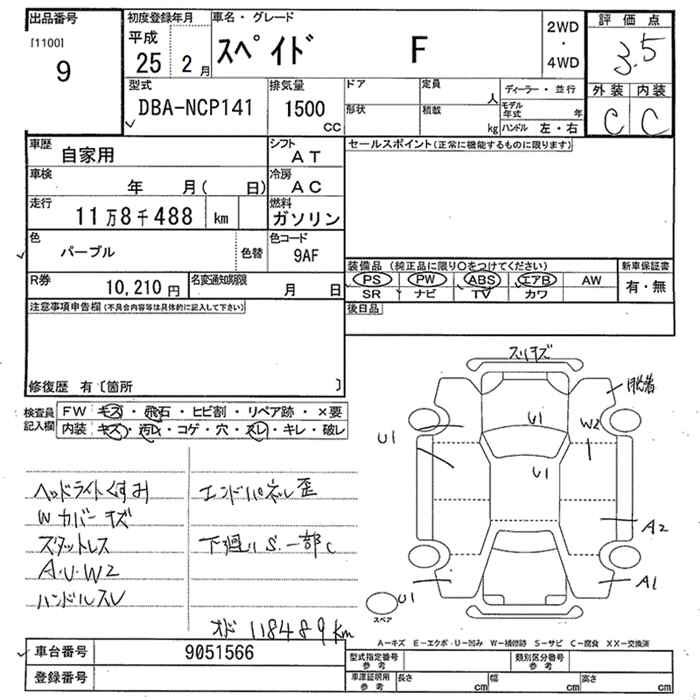 出品番号
[1100]
9
初度登録年月
平成
25 2月
車名・グレード
スペイド F
2WD
・
4WD
評価点
3.5
外装 内装
C C
型式
DBA-NCP141
排気量
1500
CC
ドア
定員
人
形状
積載
kg
ディーラー・並行
モデル年式 年
ハンドル 左・右
車歴
自家用
シフト
AT
セールスポイント(正常に機能するものに限ります)
車検
年 月( 日)
冷房
AC
走行
11万8千488 km
燃料
ガソリン
色
パープル
色替
色コード
9AF
装備品(純正品に限り○をつけてください)
新車保証書
PS PW ABS エアB AW
SR ナビ TV カワ
有・無
R券
10,210円
名変通知期限
月 日
後日品
注意事項申告欄(不具合内容等は具体的に記入して下さい)
修復歴 有〔箇所 〕
検査員記入欄
FW キズ・飛石・ヒビ割・リペア跡・×要
内装 キズ・汚レ・コゲ・穴・スレ・キレ・破レ
スリキズ
脱着
U1
W2
U1
U1
A2
U1
A1
スペア
ヘッドライトくすみ
エンドパネル歪
Wカバーキズ
スタットレス
下廻りS.一部C
A・U・W2
ハンドルスレ
オド 118489km
A-キズ E-エクボ・U-凹み W-補修跡 S-サビ C-腐食 XX-交換済
車台番号
9051566
登録番号
型式指定番号
参考
類別区分番号
参考
車庫証明用
参考
長さ cm
幅 cm
高さ cm